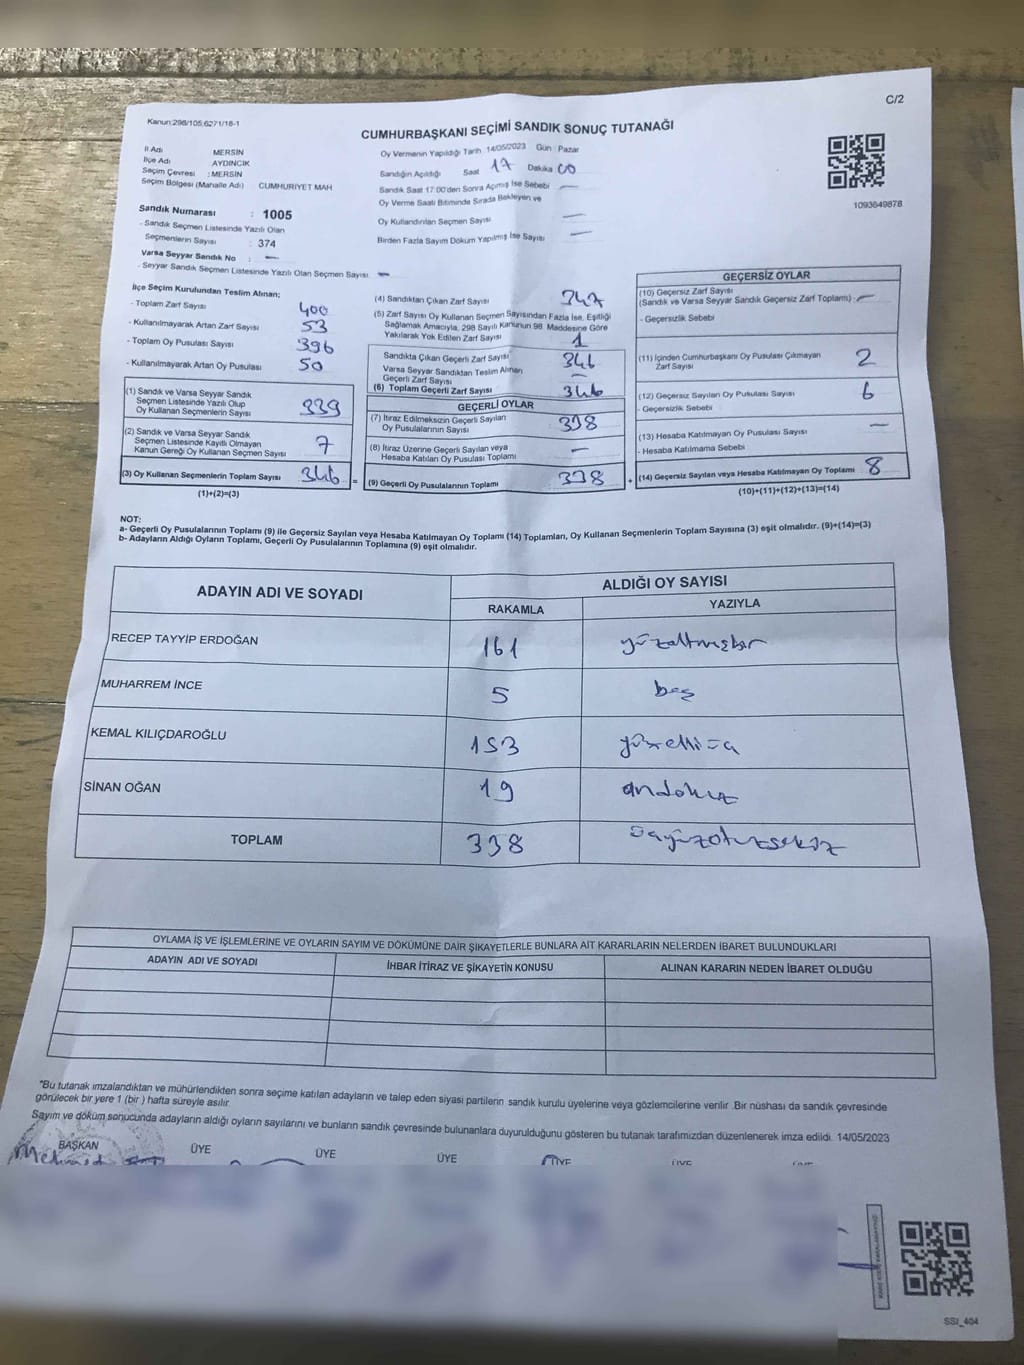 C/2
Kanun:298/105,6271/18-1
CUMHURBAŞKANI SEÇİMİ SANDIK SONUÇ TUTANAĞI
İl Adı MERSİN
İlçe Adı AYDINCIK
Seçim Çevresi : MERSİN
Seçim Bölgesi (Mahalle Adı) CUMHURİYET MAH
Oy Vermenin Yapıldığı Tarih 14/05/2023 Gün : Pazar
Sandığın Açıldığı Saat 17 Dakika 00
Sandık Saat 17:00'den Sonra Açımış İse Sebebi —
Oy Verme Saati Bitiminde Sırada Bekleyen ve
Oy Kullandırılan Seçmen Sayısı —
Birden Fazla Sayım Döküm Yapılmış İse Sayısı —
1093649878
Sandık Numarası : 1005
- Sandık Seçmen Listesinde Yazılı Olan
Seçmenlerin Sayısı : 374
Varsa Seyyar Sandık No : —
- Seyyar Sandık Seçmen Listesinde Yazılı Olan Seçmen Sayısı —
İlçe Seçim Kurulundan Teslim Alınan;
- Toplam Zarf Sayısı 400
- Kullanılmayarak Artan Zarf Sayısı 53
- Toplam Oy Pusulası Sayısı 396
- Kullanılmayarak Artan Oy Pusulası 50
(1) Sandık ve Varsa Seyyar Sandık
Seçmen Listesinde Yazılı Olup
Oy Kullanan Seçmenlerin Sayısı 339
(2) Sandık ve Varsa Seyyar Sandık
Seçmen Listesinde Kayıtlı Olmayan
Kanun Gereği Oy Kullanan Seçmen Sayısı 7
(3) Oy Kullanan Seçmenlerin Toplam Sayısı 346 =
(1)+(2)=(3)
(4) Sandıktan Çıkan Zarf Sayısı 347
(5) Zarf Sayısı Oy Kullanan Seçmen Sayısından Fazla İse, Eşitliği
Sağlamak Amacıyla, 298 Sayılı Kanunun 98. Maddesine Göre
Yakılarak Yok Edilen Zarf Sayısı 1
Sandıkta Çıkan Geçerli Zarf Sayısı 346
Varsa Seyyar Sandıktan Teslim Alınan
Geçerli Zarf Sayısı —
(6) Toplam Geçerli Zarf Sayısı 346
GEÇERLİ OYLAR
(7) İtiraz Edilmeksizin Geçerli Sayılan
Oy Pusulalarının Sayısı 338
(8) İtiraz Üzerine Geçerli Sayılan veya
Hesaba Katılan Oy Pusulası Toplamı —
(9) Geçerli Oy Pusulalarının Toplamı 338 +
GEÇERSİZ OYLAR
(10) Geçersiz Zarf Sayısı
(Sandık ve Varsa Seyyar Sandık Geçersiz Zarf Toplamı) —
- Geçersizlik Sebebi
(11) İçinden Cumhurbaşkanı Oy Pusulası Çıkmayan
Zarf Sayısı 2
(12) Geçersiz Sayılan Oy Pusulası Sayısı 6
- Geçersizlik Sebebi
(13) Hesaba Katılmayan Oy Pusulası Sayısı —
- Hesaba Katılmama Sebebi
(14) Geçersiz Sayılan veya Hesaba Katılmayan Oy Toplamı 8
(10)+(11)+(12)+(13)=(14)
NOT:
a- Geçerli Oy Pusulalarının Toplamı (9) ile Geçersiz Sayılan veya Hesaba Katılmayan Oy Toplamı (14) Toplamları, Oy Kullanan Seçmenlerin Toplam Sayısına (3) eşit olmalıdır. (9)+(14)=(3)
b- Adayların Aldığı Oyların Toplamı, Geçerli Oy Pusulalarının Toplamına (9) eşit olmalıdır.
ADAYIN ADI VE SOYADI
ALDIĞI OY SAYISI
RAKAMLA YAZIYLA
RECEP TAYYİP ERDOĞAN 161 yüzaltmışbir
MUHARREM İNCE 5 beş
KEMAL KILIÇDAROĞLU 153 yüzelliüç
SİNAN OĞAN 19 ondokuz
TOPLAM 338 üçyüzotuzsekiz
OYLAMA İŞ VE İŞLEMLERİNE VE OYLARIN SAYIM VE DÖKÜMÜNE DAİR ŞİKAYETLERLE BUNLARA AİT KARARLARIN NELERDEN İBARET BULUNDUKLARI
ADAYIN ADI VE SOYADI İHBAR İTİRAZ VE ŞİKAYETİN KONUSU ALINAN KARARIN NEDEN İBARET OLDUĞU
"Bu tutanak imzalandıktan ve mühürlendikten sonra seçime katılan adayların ve talep eden siyasi partilerin sandık kurulu üyelerine veya gözlemcilerine verilir .Bir nüshası da sandık çevresinde
görülecek bir yere 1 (bir ) hafta süreyle asılır.
Sayım ve döküm sonucunda adayların aldığı oyların sayılarını ve bunların sandık çevresinde bulunanlara duyurulduğunu gösteren bu tutanak tarafımızdan düzenlenerek imza edildi. 14/05/2023
BAŞKAN ÜYE ÜYE ÜYE ÜYE ÜYE ÜYE
Mehmet
SSI_404